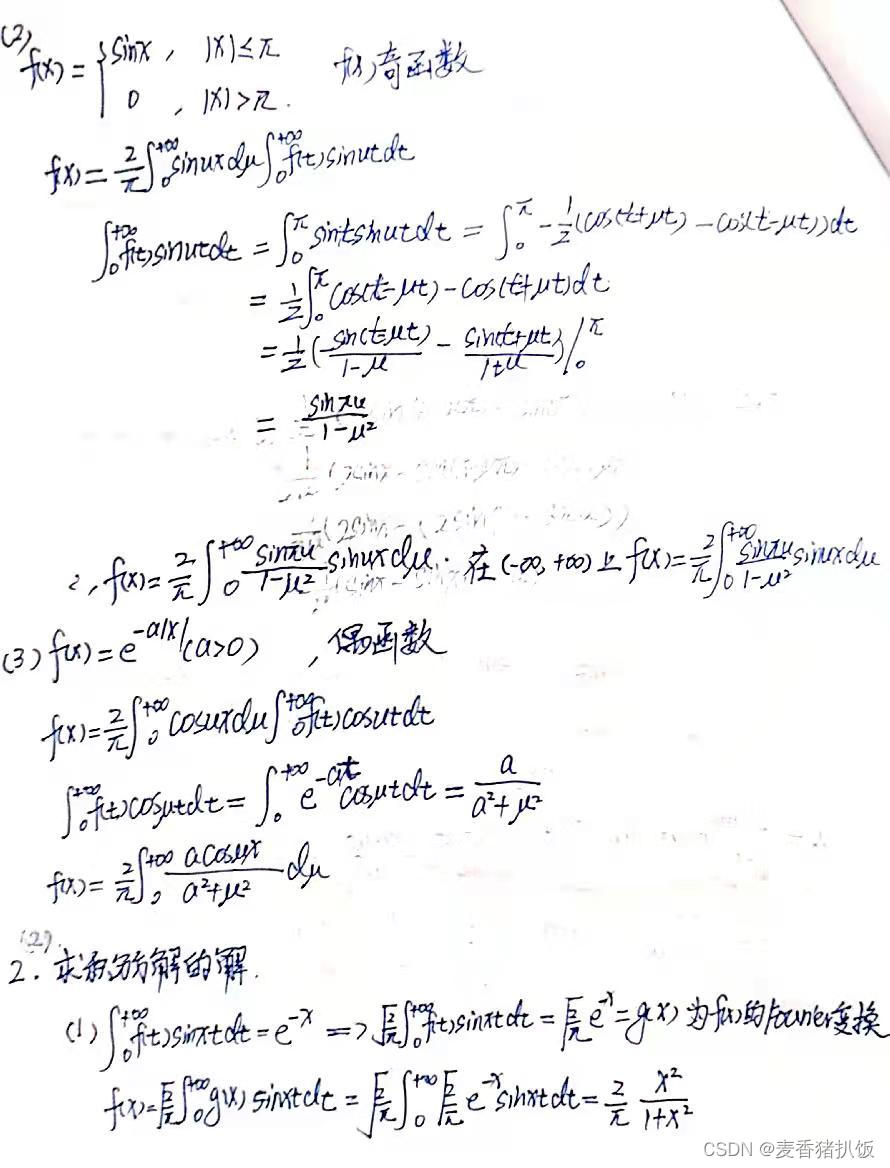 (2) f(x) = { sinx , |x|≤π f(x)奇函数
0 , |x|>π.
f(x) = 2/π ∫₀^{+∞} sinμx dμ ∫₀^{+∞} f(t) sinμt dt
∫₀^{+∞} f(t) sinμt dt = ∫₀^π sint sinμt dt = ∫₀^π -1/2 (cos(t+μt) - cos(t-μt)) dt
= 1/2 ∫₀^π cos(t-μt) - cos(t+μt) dt
= 1/2 ( sin(t-μt)/(1-μ) - sin(t+μt)/(1+μ) ) |₀^π
= sinπμ/(1-μ²)
f(x) = 2/π ∫₀^{+∞} sinπμ/(1-μ²) sinμx dμ. 在(-∞,+∞)上 f(x) = 2/π ∫₀^{+∞} sinπμ/(1-μ²) sinμx dμ
(3) f(x) = e^{-a|x|} (a>0) , 偶函数
f(x) = 2/π ∫₀^{+∞} cosμx dμ ∫₀^{+∞} f(t) cosμt dt
∫₀^{+∞} f(t) cosμt dt = ∫₀^{+∞} e^{-at} cosμt dt = a/(a²+μ²)
f(x) = 2/π ∫₀^{+∞} a cosμx/(a²+μ²) dμ
(2).
2. 求积分方解的解.
(1) ∫₀^{+∞} f(t) sinxt dt = e^{-x} => √(2/π) ∫₀^{+∞} f(t) sinxt dt = √(2/π) e^{-x} = g(x) 为f(x)的Fourier变换
f(x) = √(2/π) ∫₀^{+∞} g(x) sinxt dt = √(2/π) ∫₀^{+∞} √(2/π) e^{-x} sinxt dt = 2/π x²/(1+x²)
CSDN @麦香猪扒饭